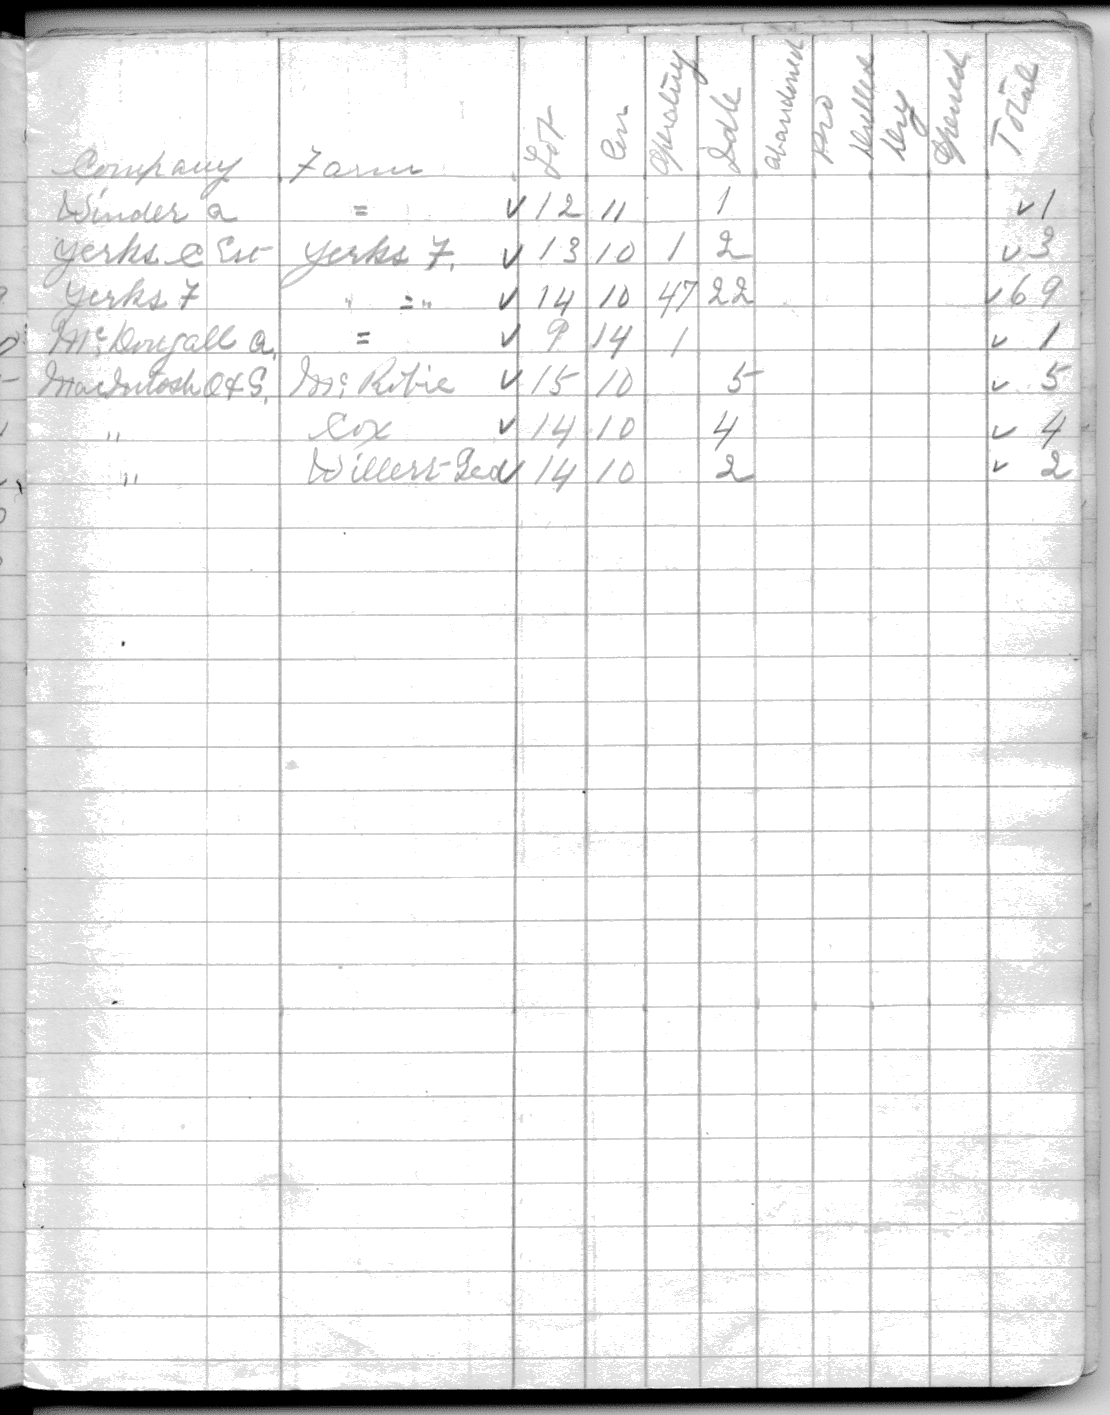 Company Farm Lot Con Operating Idle Abandoned Pro Drilled Dry Opened Total
Winder a = ✓ 12 11 1 ✓ 1
Yerks C Est Yerks F. ✓ 13 10 1 2 ✓ 3
Yerks F " = " ✓ 14 10 47 22 ✓ 69
McDougall A. = ✓ 9 14 1 ✓ 1
MacIntosh O & G. Mc Robie ✓ 15 10 5 ✓ 5
" Cox ✓ 14 10 4 ✓ 4
" Willert Ged ✓ 14 10 2 ✓ 2